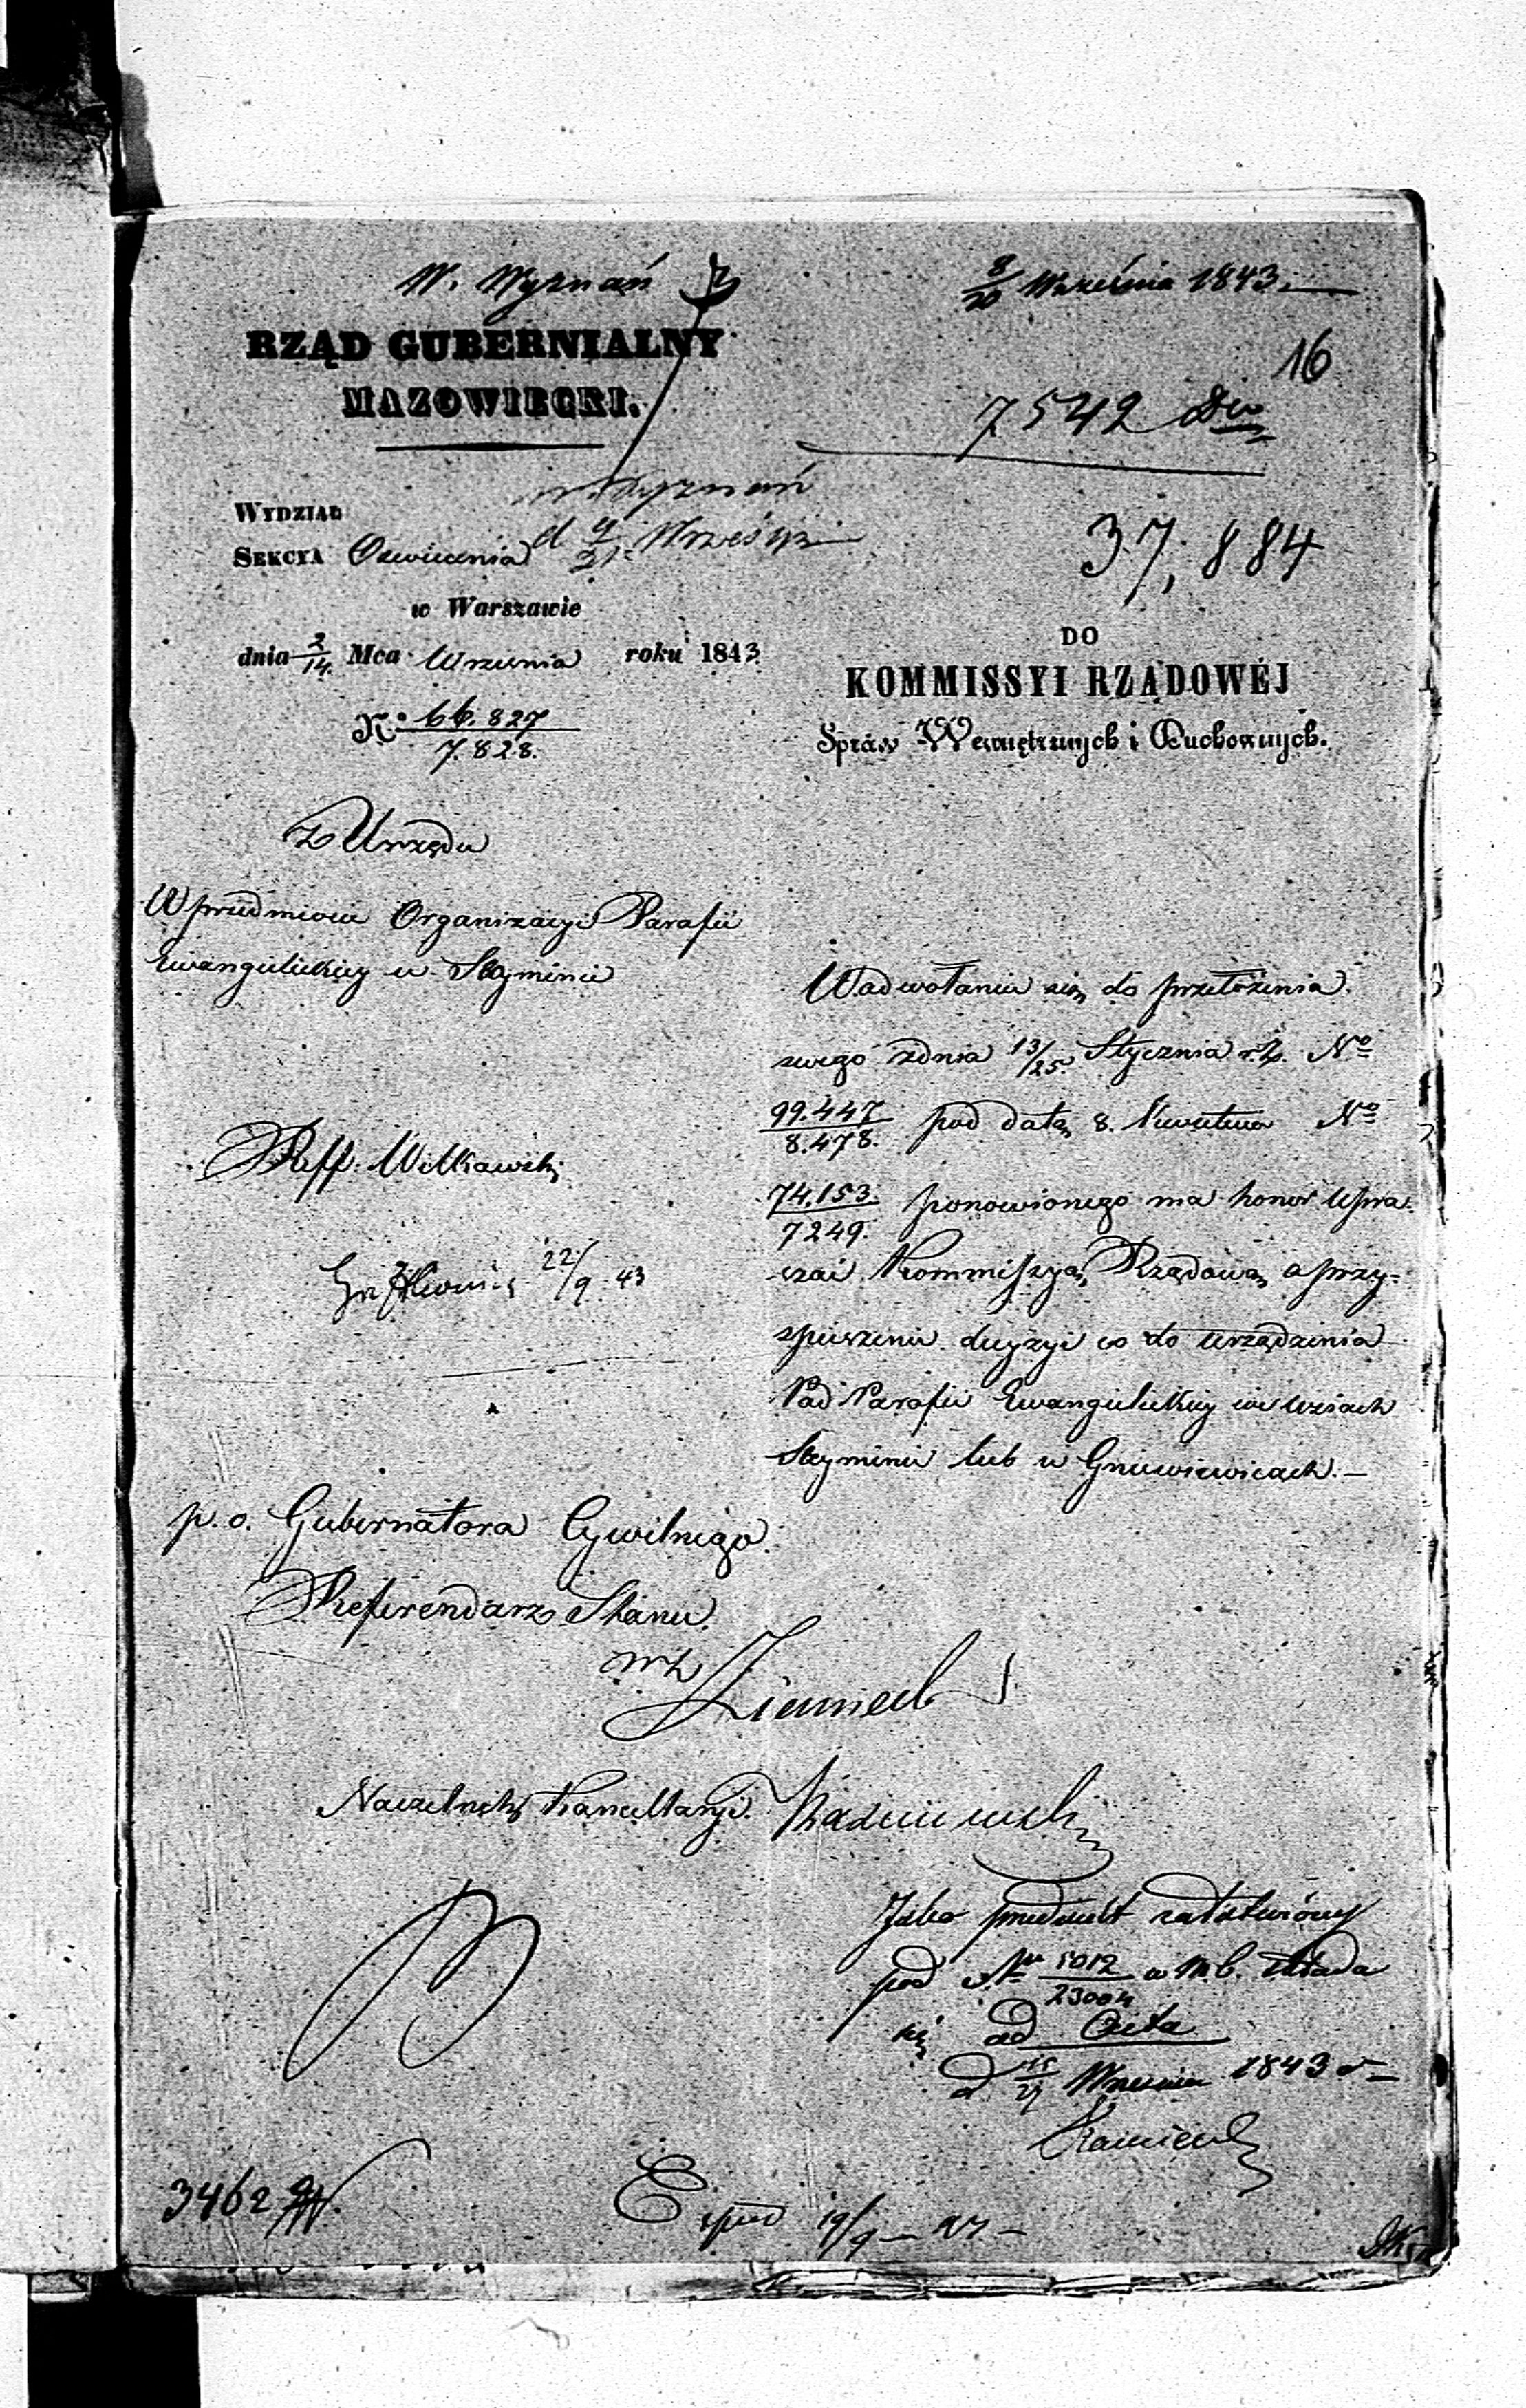 W. Wyznań
8/20 Września 1843.
RZĄD GUBERNIALNY
MAZOWIECKI.
16
7542
W. Wyznań
d 9/21 Wrześn
37,884
WYDZIAŁ
SEKCYA Oswiecenia
w Warszawie
dnia 2/14. Mca Wrzesnia roku 1843
N. 66.827/7.828.
DO
KOMMISSYI RZĄDOWÉJ
Spraw Wewnętrznych i Duchownych.
Z Urzędu
W przedmiocie Organizacyi Parafii
Ewangelickiey w Secyminie
W odwołaniu się do przełożenia
swego z dnia 13/25 Stycznia r. b. No
99.447/8.478. pod datą 8. Kwietnia No
74.153/7249. ponowionego ma honor upra-
szać Kommissyą Rządową o przy-
spieszenie decyzyi co do urządzenia
Parafii Ewangelickiey we wsiach
Secyminie lub w Gniewniewicach.—
Reff. Wilkawski
22/9 43
p. o. Gubernatora Cywilnego
Referendarz Stanu
wz
Naczelnik Kancellaryi.
Jako produkt załatwiony
pod Nr 5012/23004 w M b. składa
się ad Acta
d 15/27 Wrzesnia 1843 r
3462
Exped 19/9